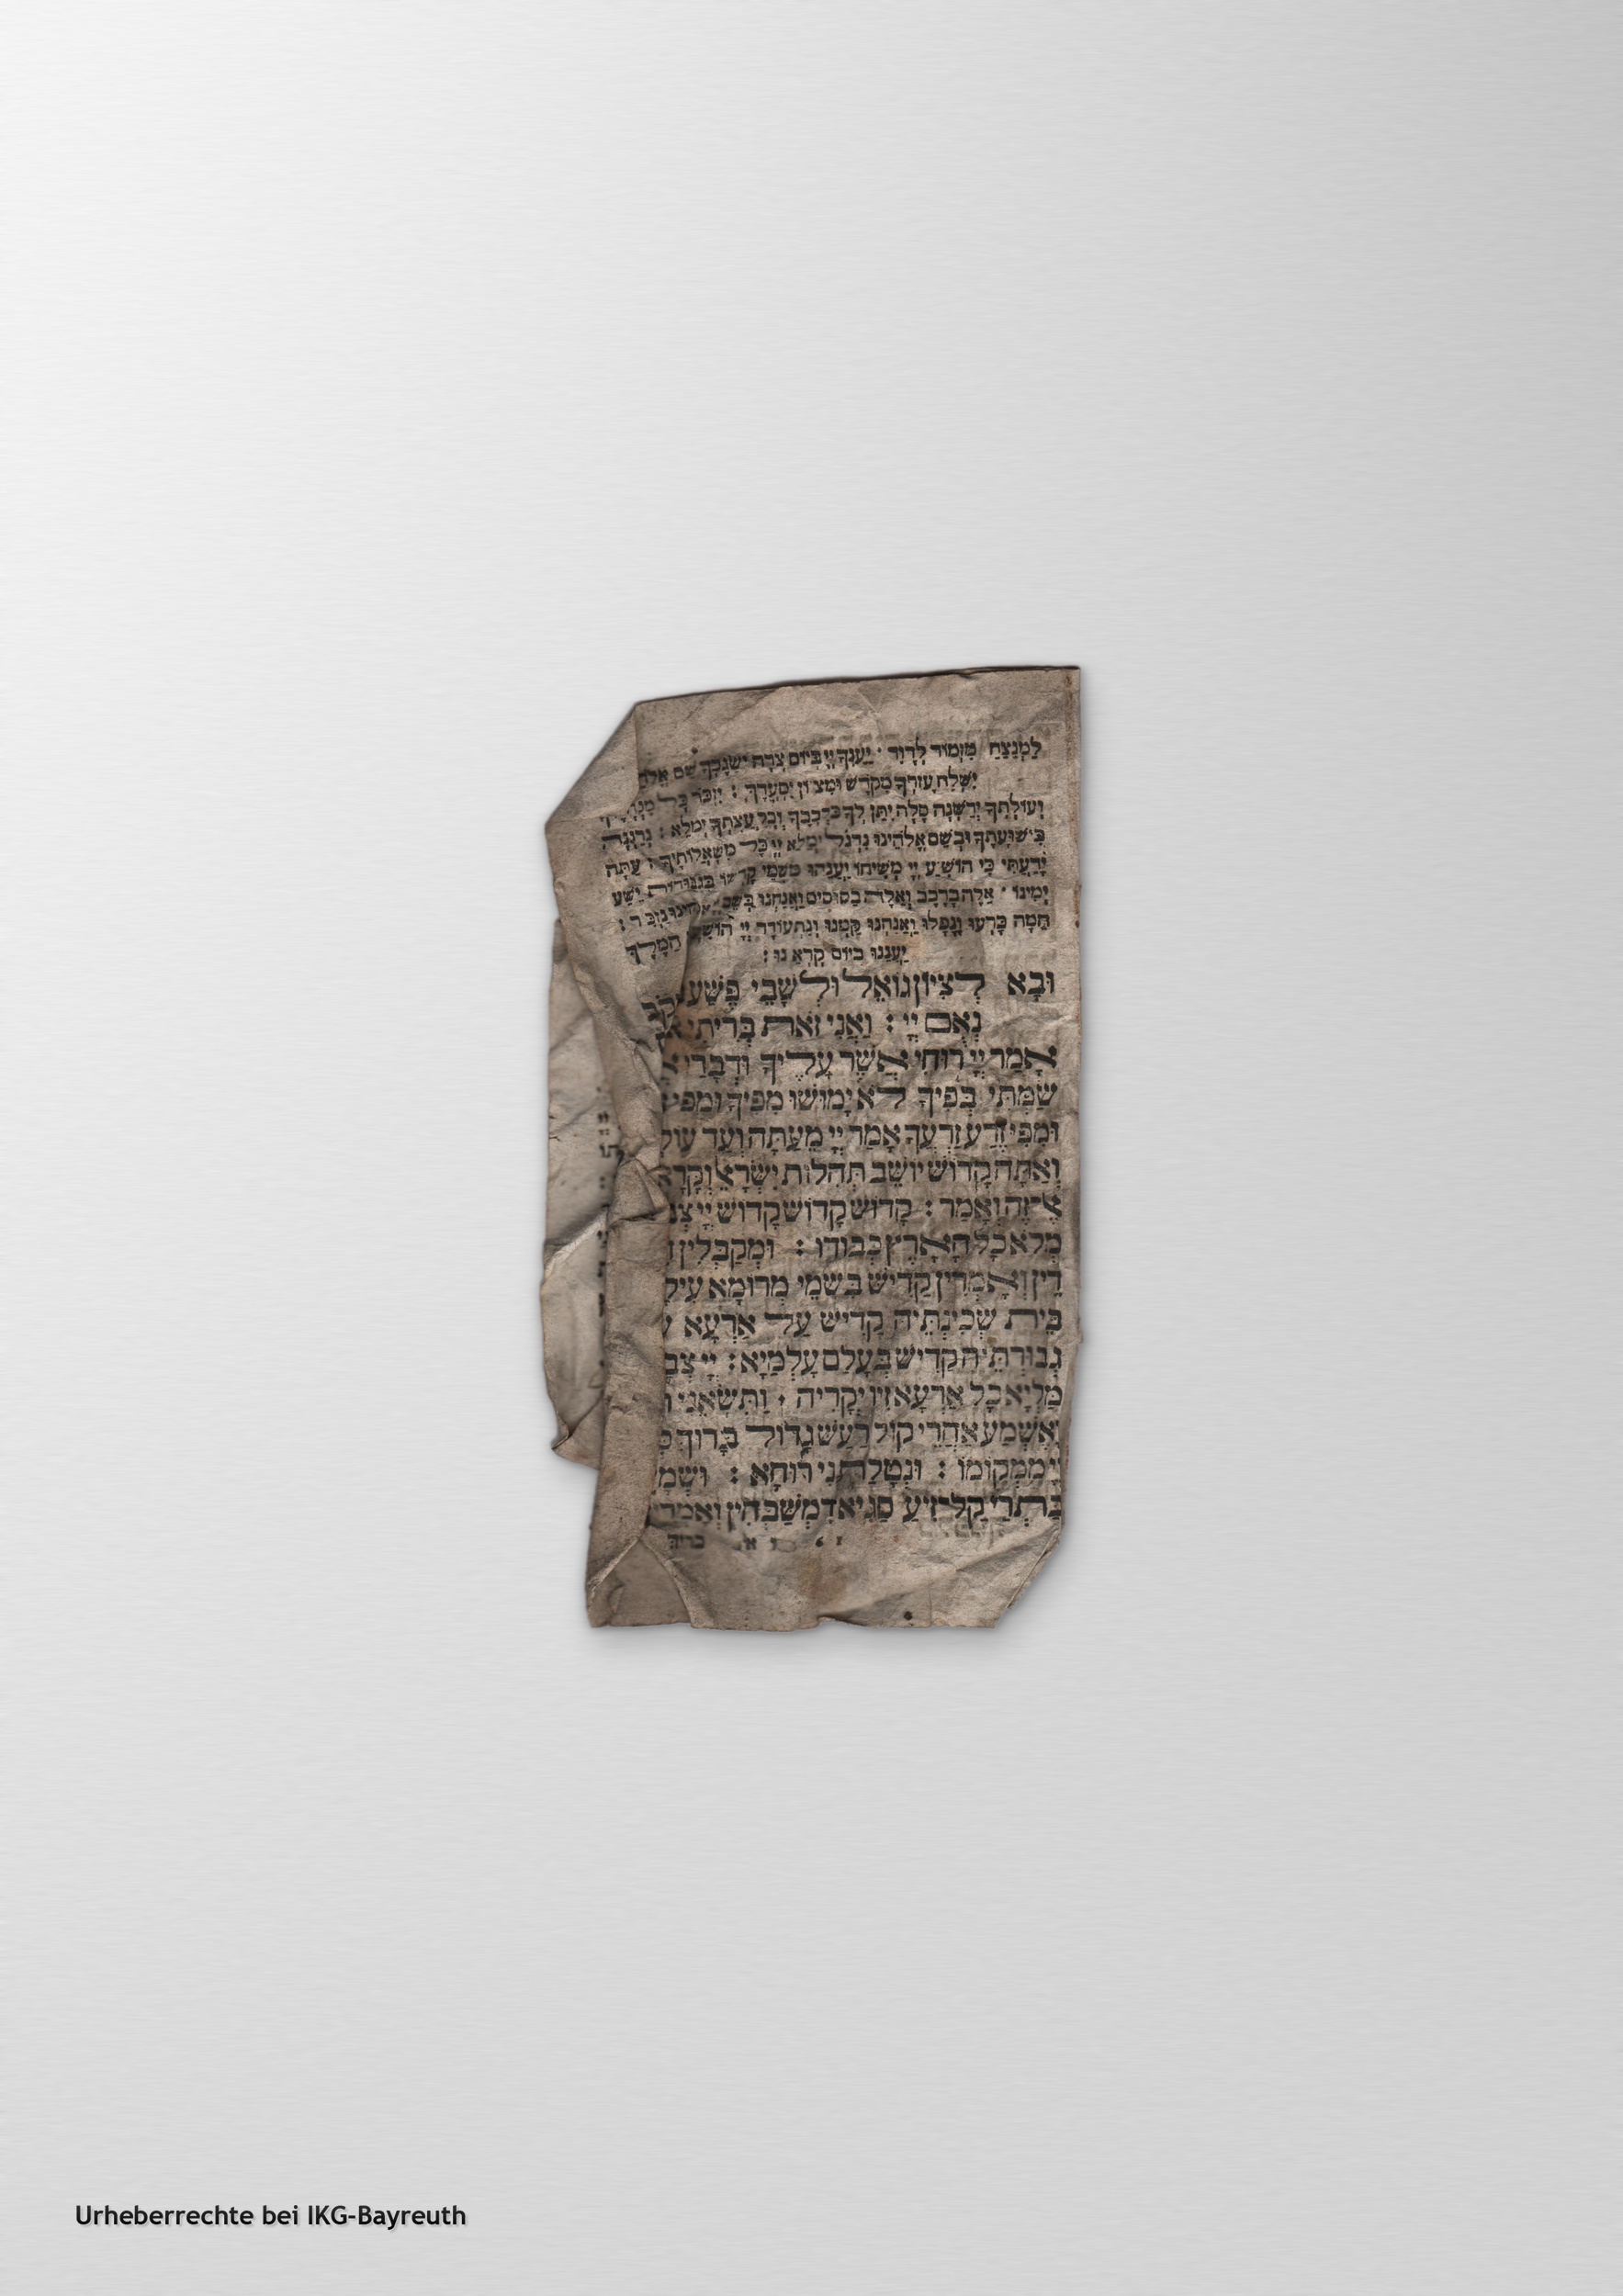 לַמְנַצֵּחַ מִזְמוֹר לְדָוִד ׃ יַעַנְךָ יְיָ בְּיוֹם צָרָה יְשַׂגֶּבְךָ שֵׁם אֱלֹהֵי
יִשְׁלַח עֶזְרְךָ מִקֹּדֶשׁ וּמִצִּיוֹן יִסְעָדֶךָּ ׃ יִזְכֹּר כָּל
וְעוֹלָתְךָ יְדַשְּׁנֶה סֶלָה יִתֶּן לְךָ כִלְבָבֶךָ וְכָל עֲצָתְךָ יְמַלֵּא ׃ נְרַנְּנָה
בִּישׁוּעָתֶךָ וּבְשֵׁם אֱלֹהֵינוּ נִדְגֹּל יְמַלֵּא יְיָ כָּל מִשְׁאֲלוֹתֶיךָ ׃ עַתָּה
יָדַעְתִּי כִּי הוֹשִׁיעַ יְיָ מְשִׁיחוֹ יַעֲנֵהוּ מִשְּׁמֵי קָדְשׁוֹ בִּגְבוּרוֹת יֵשַׁע
יְמִינוֹ ׃ אֵלֶּה בָרֶכֶב וְאֵלֶּה בַסּוּסִים וַאֲנַחְנוּ בְּשֵׁם
הֵמָּה כָּרְעוּ וְנָפָלוּ וַאֲנַחְנוּ קַּמְנוּ וַנִּתְעוֹדָד יְיָ הוֹשִׁיעָה הַמֶּלֶךְ
יַעֲנֵנוּ בְיוֹם קָרְאֵנוּ ׃
וּבָא לְצִיּוֹן גּוֹאֵל וּלְשָׁבֵי פֶשַׁע
נְאֻם יְיָ ׃ וַאֲנִי זֹאת בְּרִיתִי
אָמַר יְיָ רוּחִי אֲשֶׁר עָלֶיךָ וּדְבָרַי
שַׂמְתִּי בְּפִיךָ לֹא יָמוּשׁוּ מִפִּיךָ וּמִפִּי
וּמִפִּי זֶרַע זַרְעֲךָ אָמַר יְיָ מֵעַתָּה וְעַד עוֹלָ
וְאַתָּה קָדוֹשׁ יוֹשֵׁב תְּהִלּוֹת יִשְׂרָאֵל וְקָרָא
אֶל זֶה וְאָמַר ׃ קָדוֹשׁ קָדוֹשׁ קָדוֹשׁ יְיָ צְ
מְלֹא כָל הָאָרֶץ כְּבוֹדוֹ ׃ וּמְקַבְּלִין
דֵּין וְאָמְרִין קַדִּישׁ בִּשְׁמֵי מְרוֹמָא עִילָּ
בֵּית שְׁכִינְתֵּיהּ קַדִּישׁ עַל אַרְעָא
גְּבוּרְתֵּיהּ קַדִּישׁ בְּעָלַם עָלְמַיָּא ׃ יְיָ צְבָ
מַלְיָא כָל אַרְעָא זִיו יְקָרֵיהּ ׃ וַתִּשָּׂאֵנִי
וָאֶשְׁמַע אַחֲרַי קוֹל רַעַשׁ גָּדוֹל בָּרוּךְ כְּ
יְיָ מִמְּקוֹמוֹ ׃ וּנְטָלַתְנִי רוּחָא ׃ וּשְׁמָ
בַּתְרַי קָל זִיעַ סַגִּיא דִּמְשַׁבְּחִין וְאָמְרִי
בריך
Urheberrechte bei IKG-Bayreuth